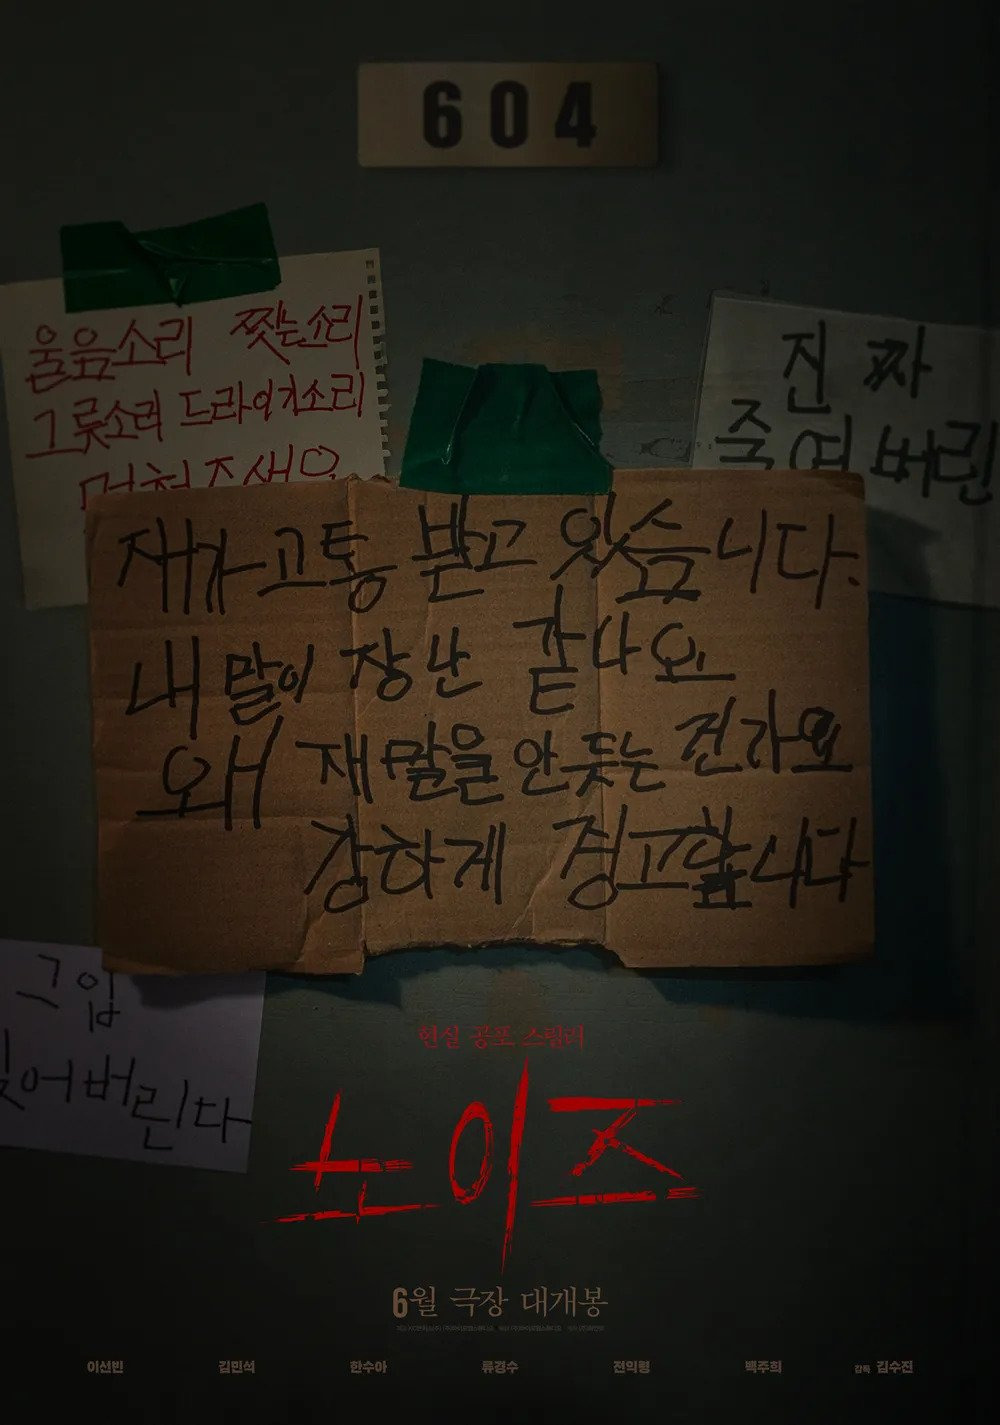 604
울음소리 찢는소리
그릇소리 드라이기소리
멈춰주세요
진짜
죽여버린
재가 고통 받고 있습니다.
내 말이 장난 같나요
왜 재 말을 안듣는 건가요
강하게 경고합니다
그입
찢어버린다
현실 공포 스릴러
노이즈
6월 극장 대개봉
이선빈 김민석 한수아 류경수 전익령 백주희 감독 김수진